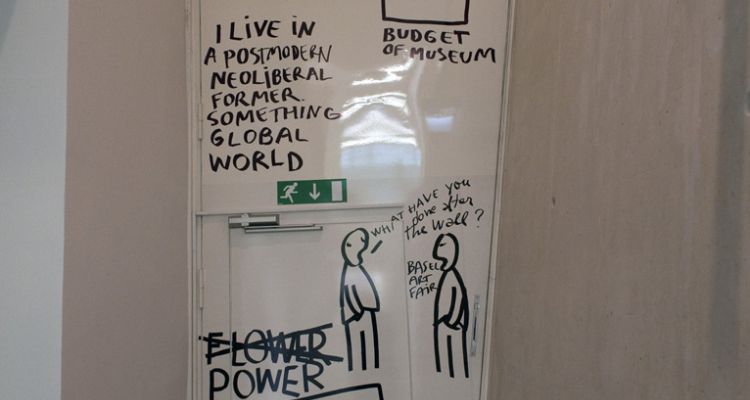 I LIVE IN
A POSTMODERN
NEOLIBERAL
FORMER.
SOMETHING
GLOBAL
WORLD
BUDGET
OF MUSEUM
WHAT HAVE YOU
done after
the Wall?
BASEL
ART
FAIR
FLOWER
POWER